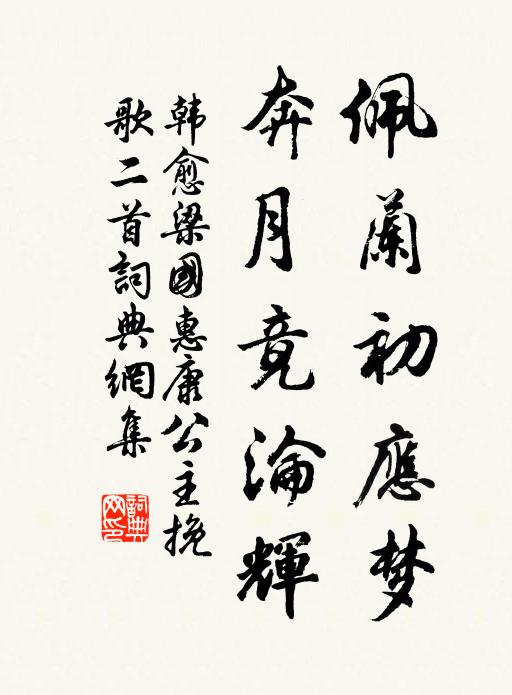 佩蘭初應梦
奔月竟淪輝
韩愈梁國惠康公主挽
歌二首詞典網集
詞典网印